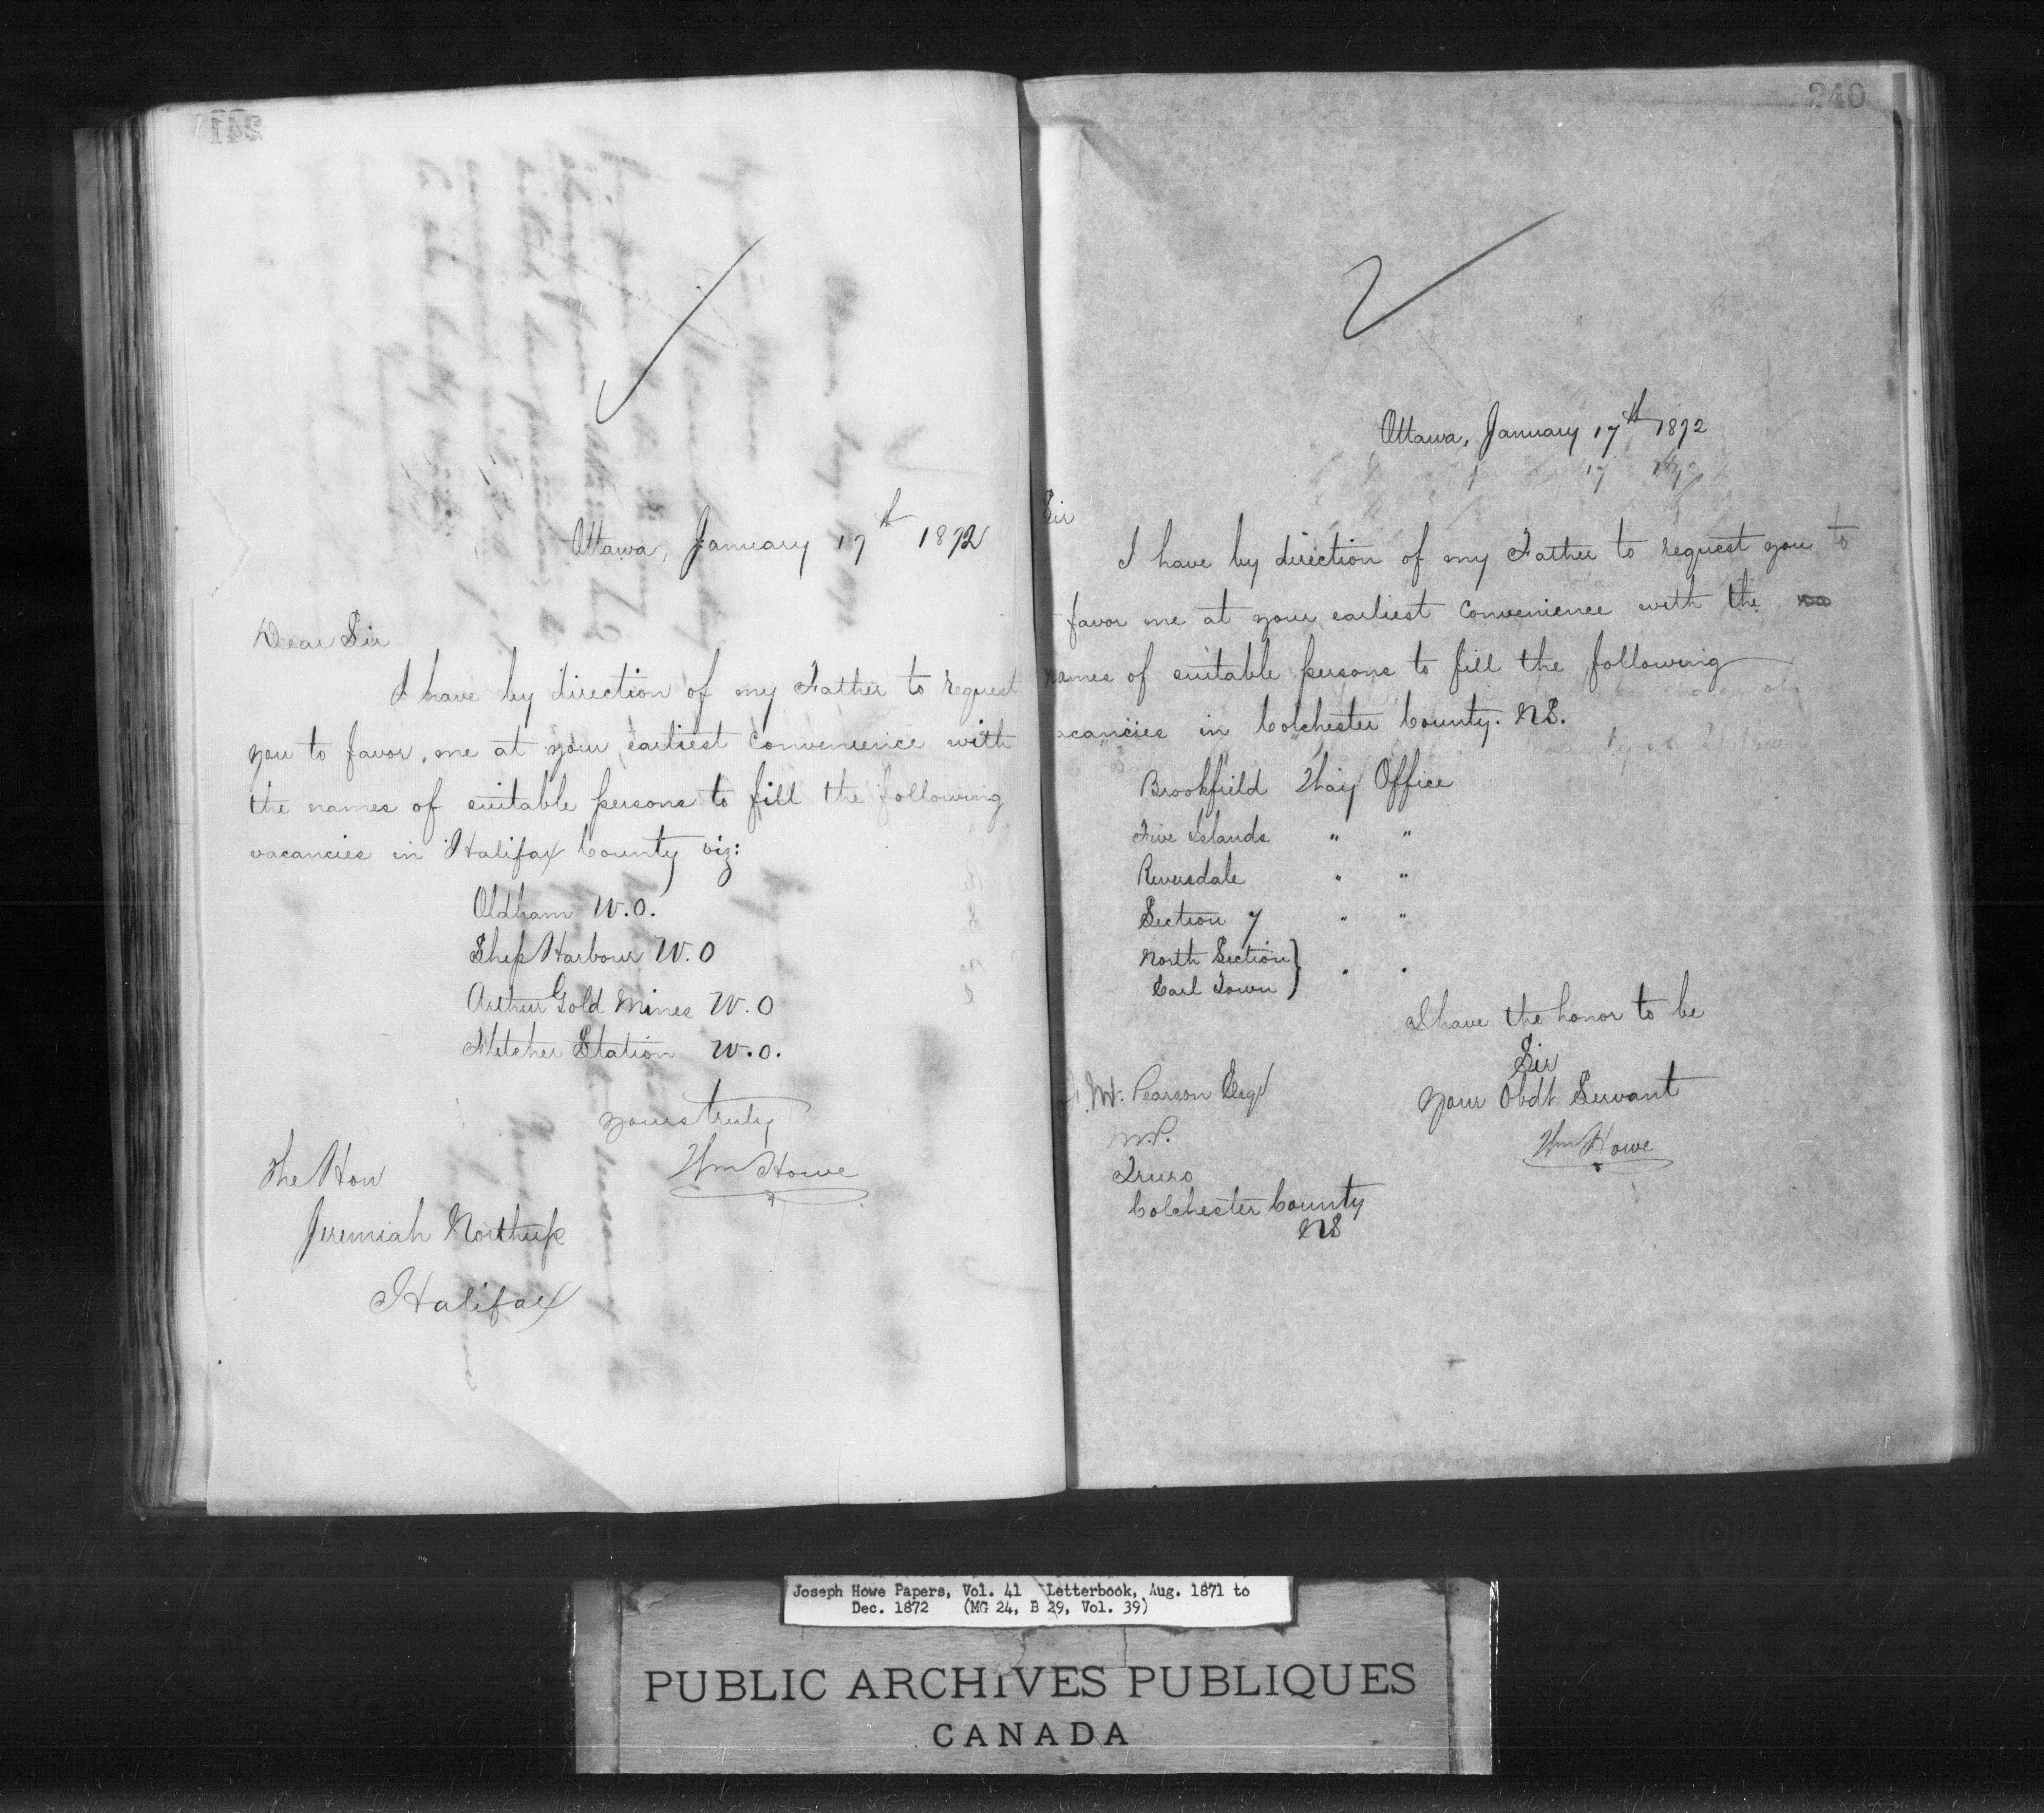 241
Ottawa, January 17th 1872
Dear Sir
I have by direction of my Father to request
you to favor me at your earliest convenience with
the names of suitable persons to fill the following
vacancies in Halifax County viz:
Oldham W.O.
Ship Harbour W.O
Arthur Gold Mines W.O
Fletcher Station W.O.
yours truly
Wm Howe
The Hon
Jeremiah Northup
Halifax
240
Ottawa, January 17th 1872
Sir
I have by direction of my Father to request you to
favor me at your earliest convenience with the
names of suitable persons to fill the following
vacancies in Colchester County. NS.
Brookfield Way Office
Five Islands " "
Riversdale " "
Section 7 " "
North Section } " "
Earl Town
I have the honor to be
Sir
Your Obdt Servant
Wm Howe
Pearson Esqr
M.P.
Truro
Colchester County
NS
Joseph Howe Papers, Vol. 41 Letterbook, Aug. 1871 to
Dec. 1872 (MG 24, B 29, Vol. 39)
PUBLIC ARCHIVES PUBLIQUES
CANADA